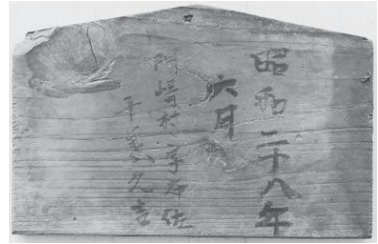 昭和二十八年
六月
崎村字石佐
千葉久吉